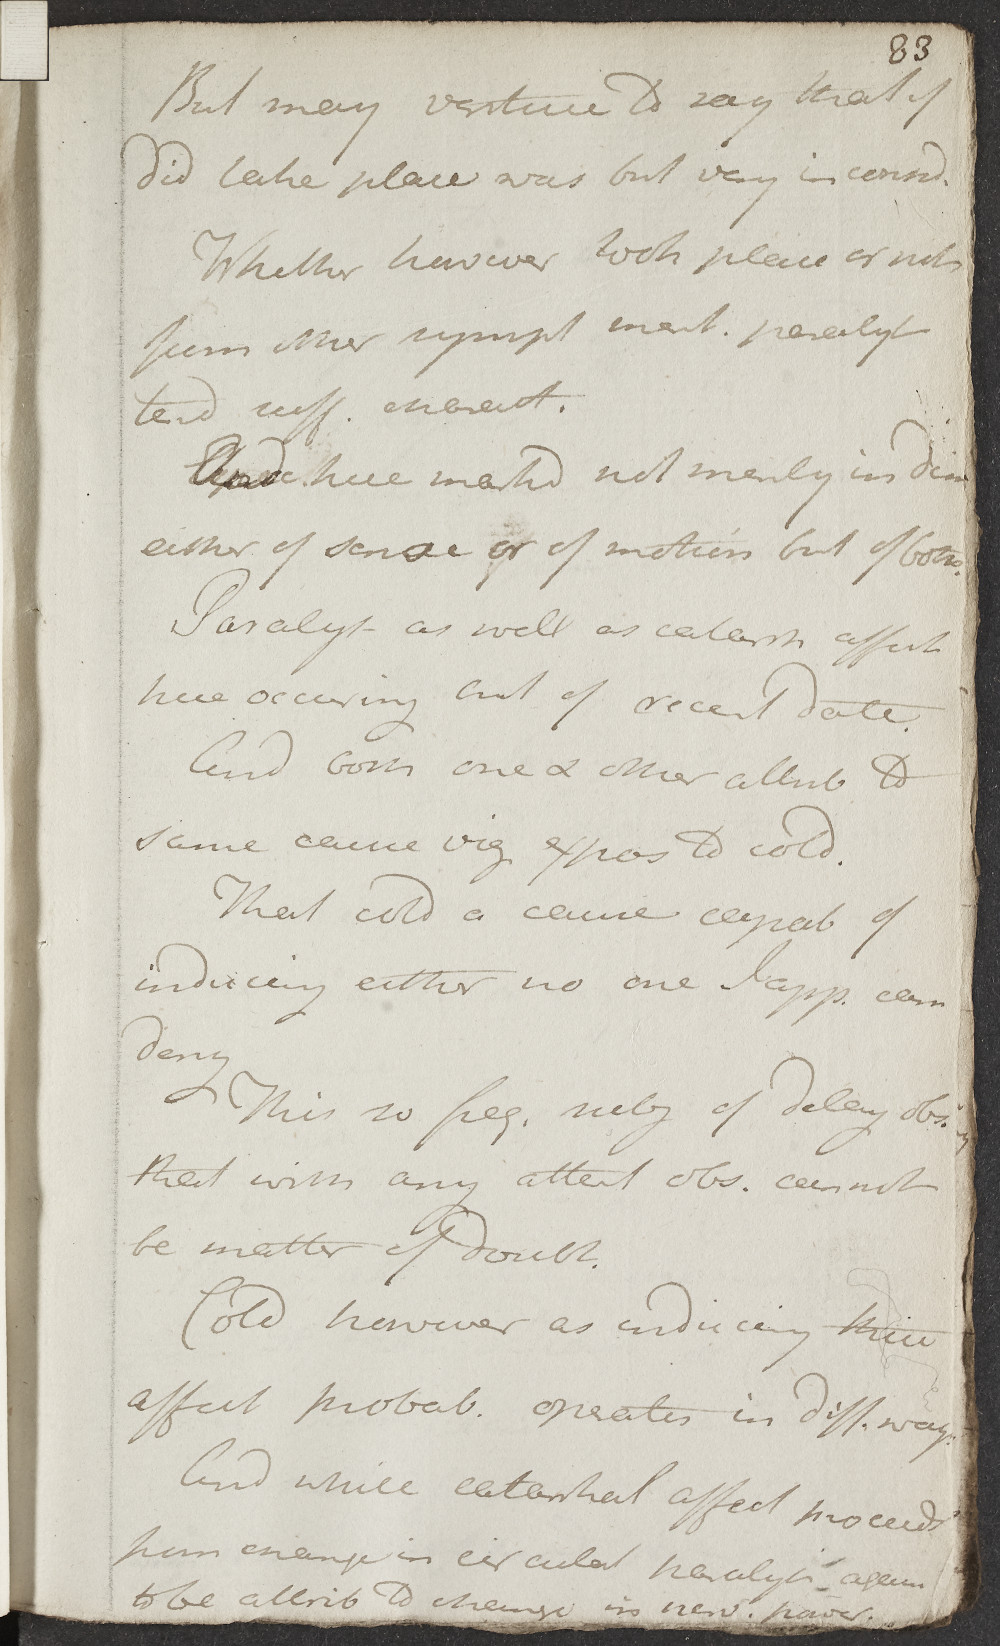 83
But may venture to say that if
did take place was but very inconsd.
Whether however took place or not
from other sympt ment. paralyt
tend suff. charact.
And here mark'd not merely in dim
either of sense or of motion but of both.
Paralyt as well as catarrh affect
here occuring but of recent date.
And both one & other attrib to
same cause viz expos to cold.
That cold a cause capab of
inducing either no one I app. can
deny
This so freq. subj of daily obs.
that with any attent obs. cannot
be matter of doubt.
Cold however as inducing these
affect probab. operates in diff. way.
And while catarrhal affect proceeds
from change in circulat paralytic again
to be attrib to change in nerv. power.